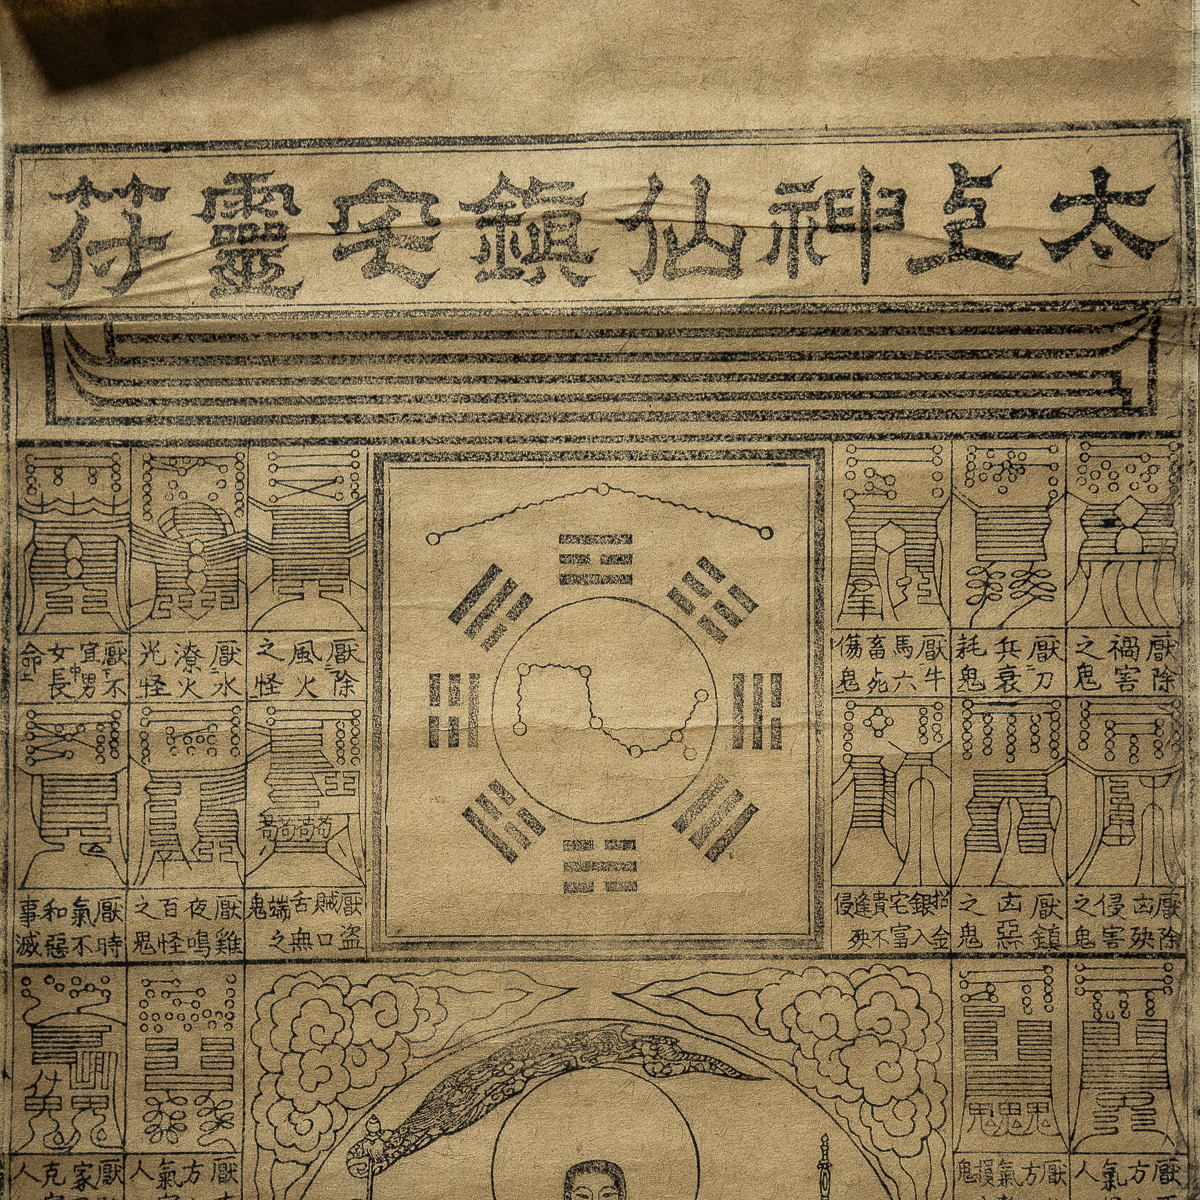 太上神仙鎮宅靈符
厭除禍害之鬼
厭刀兵衰耗鬼
厭牛馬六畜死傷鬼
厭除風火之怪
厭水潦火光怪
厭不宜男女長命
厭除凶殃侵害之鬼
厭鎮凶惡之鬼
招金銀入宅富貴不逢殃侵
厭盜賊口舌無端之鬼
厭雞夜鳴百怪之鬼
厭時氣不和惡事滅
厭方氣人
厭方氣損鬼
厭方氣人
厭家克人